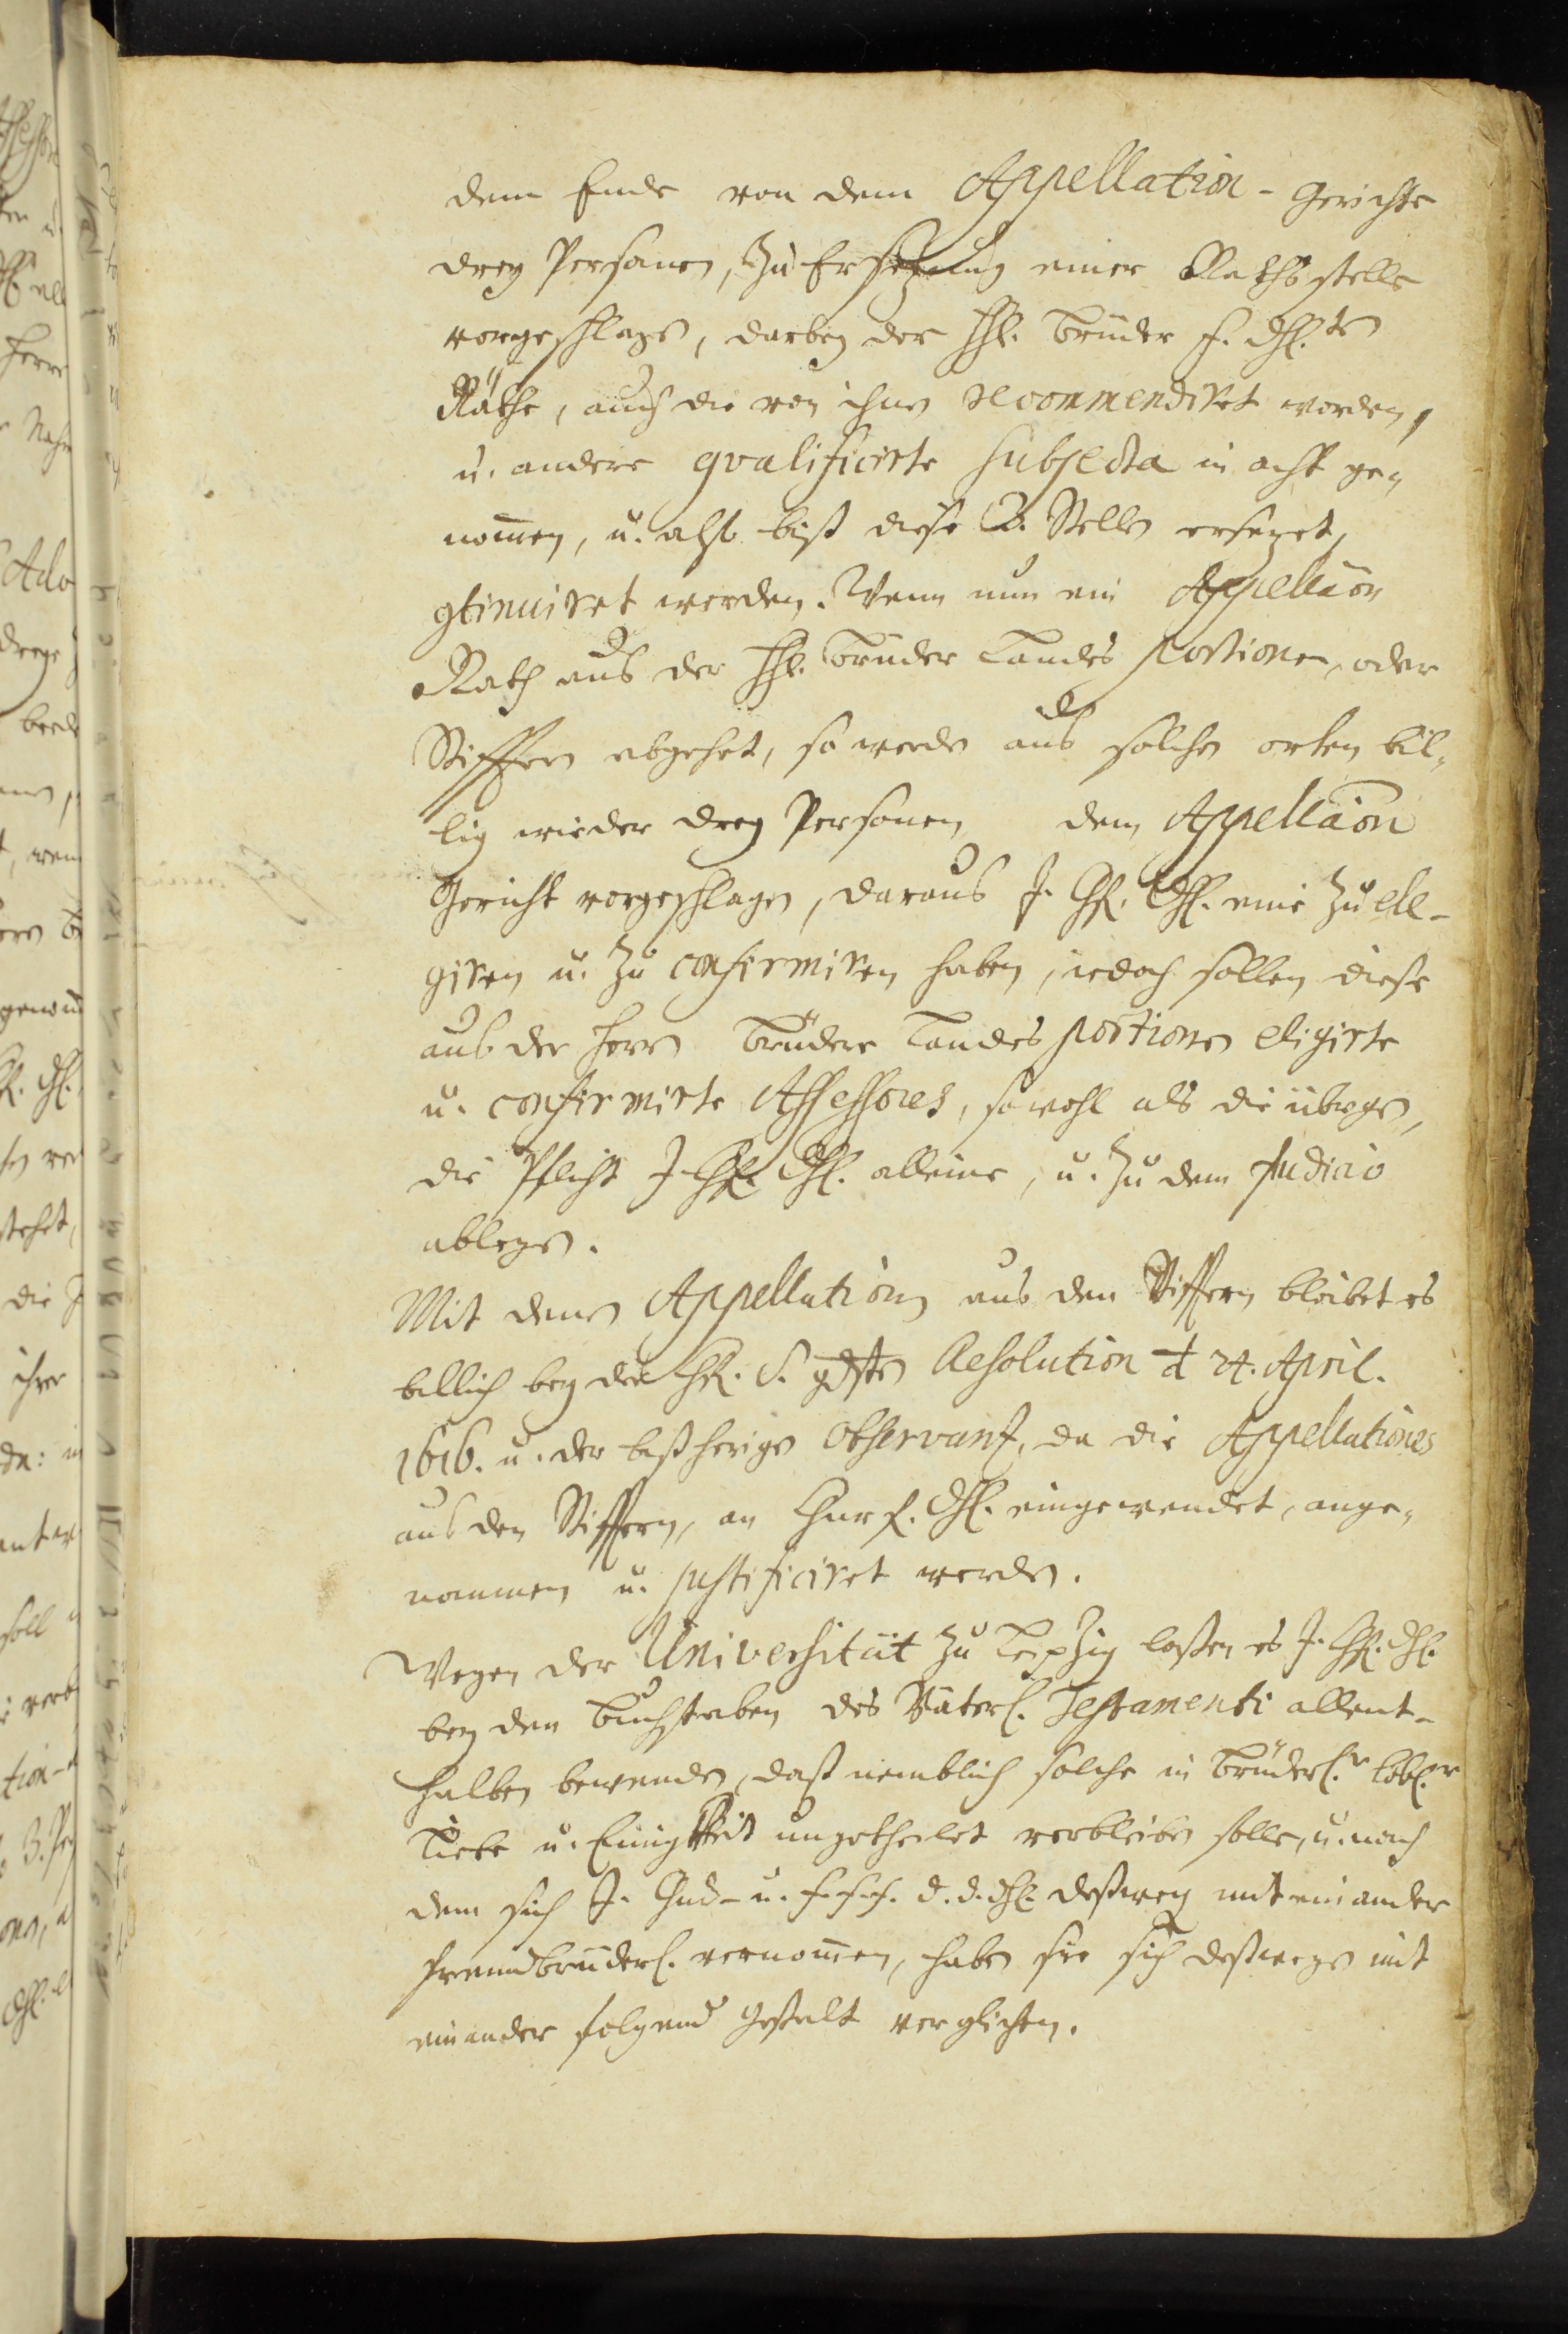 dem Ende von dem Appellation - Gerichte
drey Personen, zu Ersetzung einer Rathsstelle
vorgeschlagen, darbey der HH. Brüder F. Dhl.ten
Räthe, auch die von ihnen recommendiret worden,
u. andere qvalificirte Subjecta in acht ge-
nom̄en, u. also biß diese 2. Stellen ersezet,
ɔtinuiret werden. Wenn nun ein Appellaōn
Rath aus der HH. Brüder Landes portionen, oder
Stifftern abgehet, so werden aus solchen orten bil-
lig wieder drey Personen dem Appellaōn
Gericht vorgeschlagen, daraus J. Chf. Dhl. eine zu eli-
giren u. zu confirmiren haben, iedoch sollen diese
aus der Herrn Brüdere Landes portionen eligirte
u. confirmirte Assessores, sowohl als die übrigen,
die Pflicht J. Chf. Dhl. alleine, u. zu dem Judicio
ablegen.
Mit denen Appellationen aus den Stifftern bleibet es
billich bey der Chf. S. gdsten Resolution d 24. April.
1616. u. der bißherigen Observanz, da die Appellationes
aus den Stifftern, an Churf. Dhl. eingewendet, ange-
nommen u. justificiret werden.
Wegen der Universität zu Leipzig laßen es J. Chf. Dhl.
bey den Buchstaben des Väterl. Testamenti allent-
halben bewenden, daß nemblich solche in Brüderl.r löbl.r
Liebe u. Einigkeit ungetheilet verbleiben solle, u. nach
dem sich J. Chur- u. F. F. F. D. D. Dhl. deßweg mit einander
freundbrüderl. vernom̄en, haben sie sich deßwegen mit
einander folgend Gestalt verglichen.